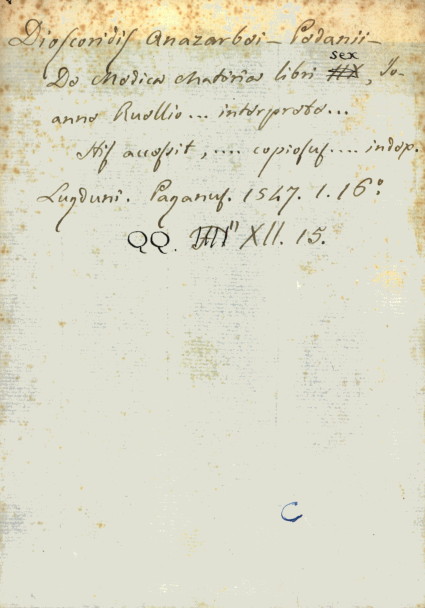 Dioscoridis Anazarbei - Pedanii -
De Medica Materia libri sex, Jo-
anne Ruellio... interprete...
His accessit, .... copiosus .... index.
Lugduni. Paganus. 1547. 1. 16º
QQ. XII. 15.
C